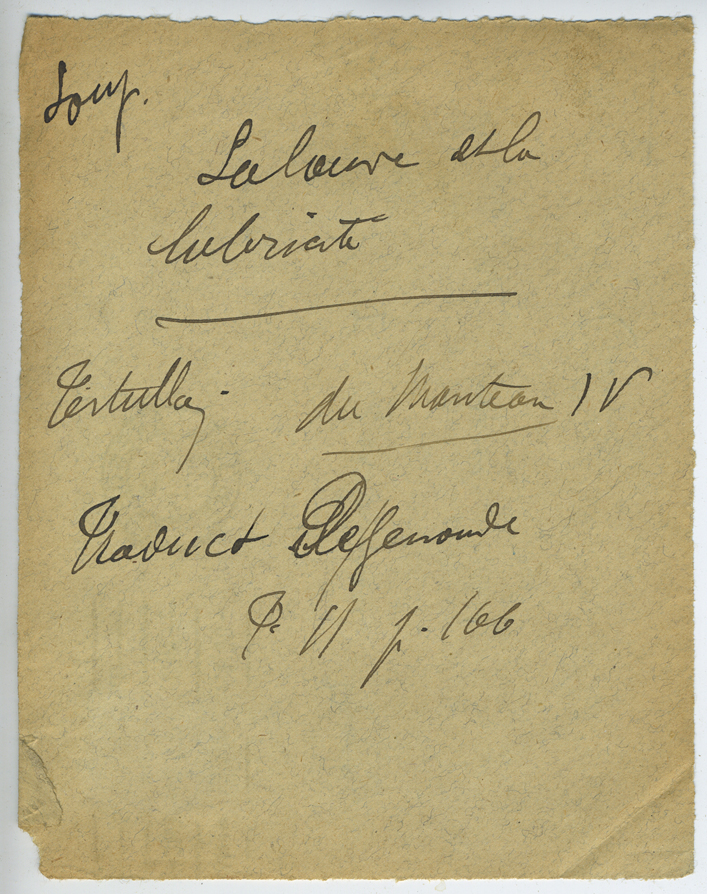 Loup.
La louve et la
lubricité
Tertullien du Manteau IV
Traduct de Genoude
T. II p. 166